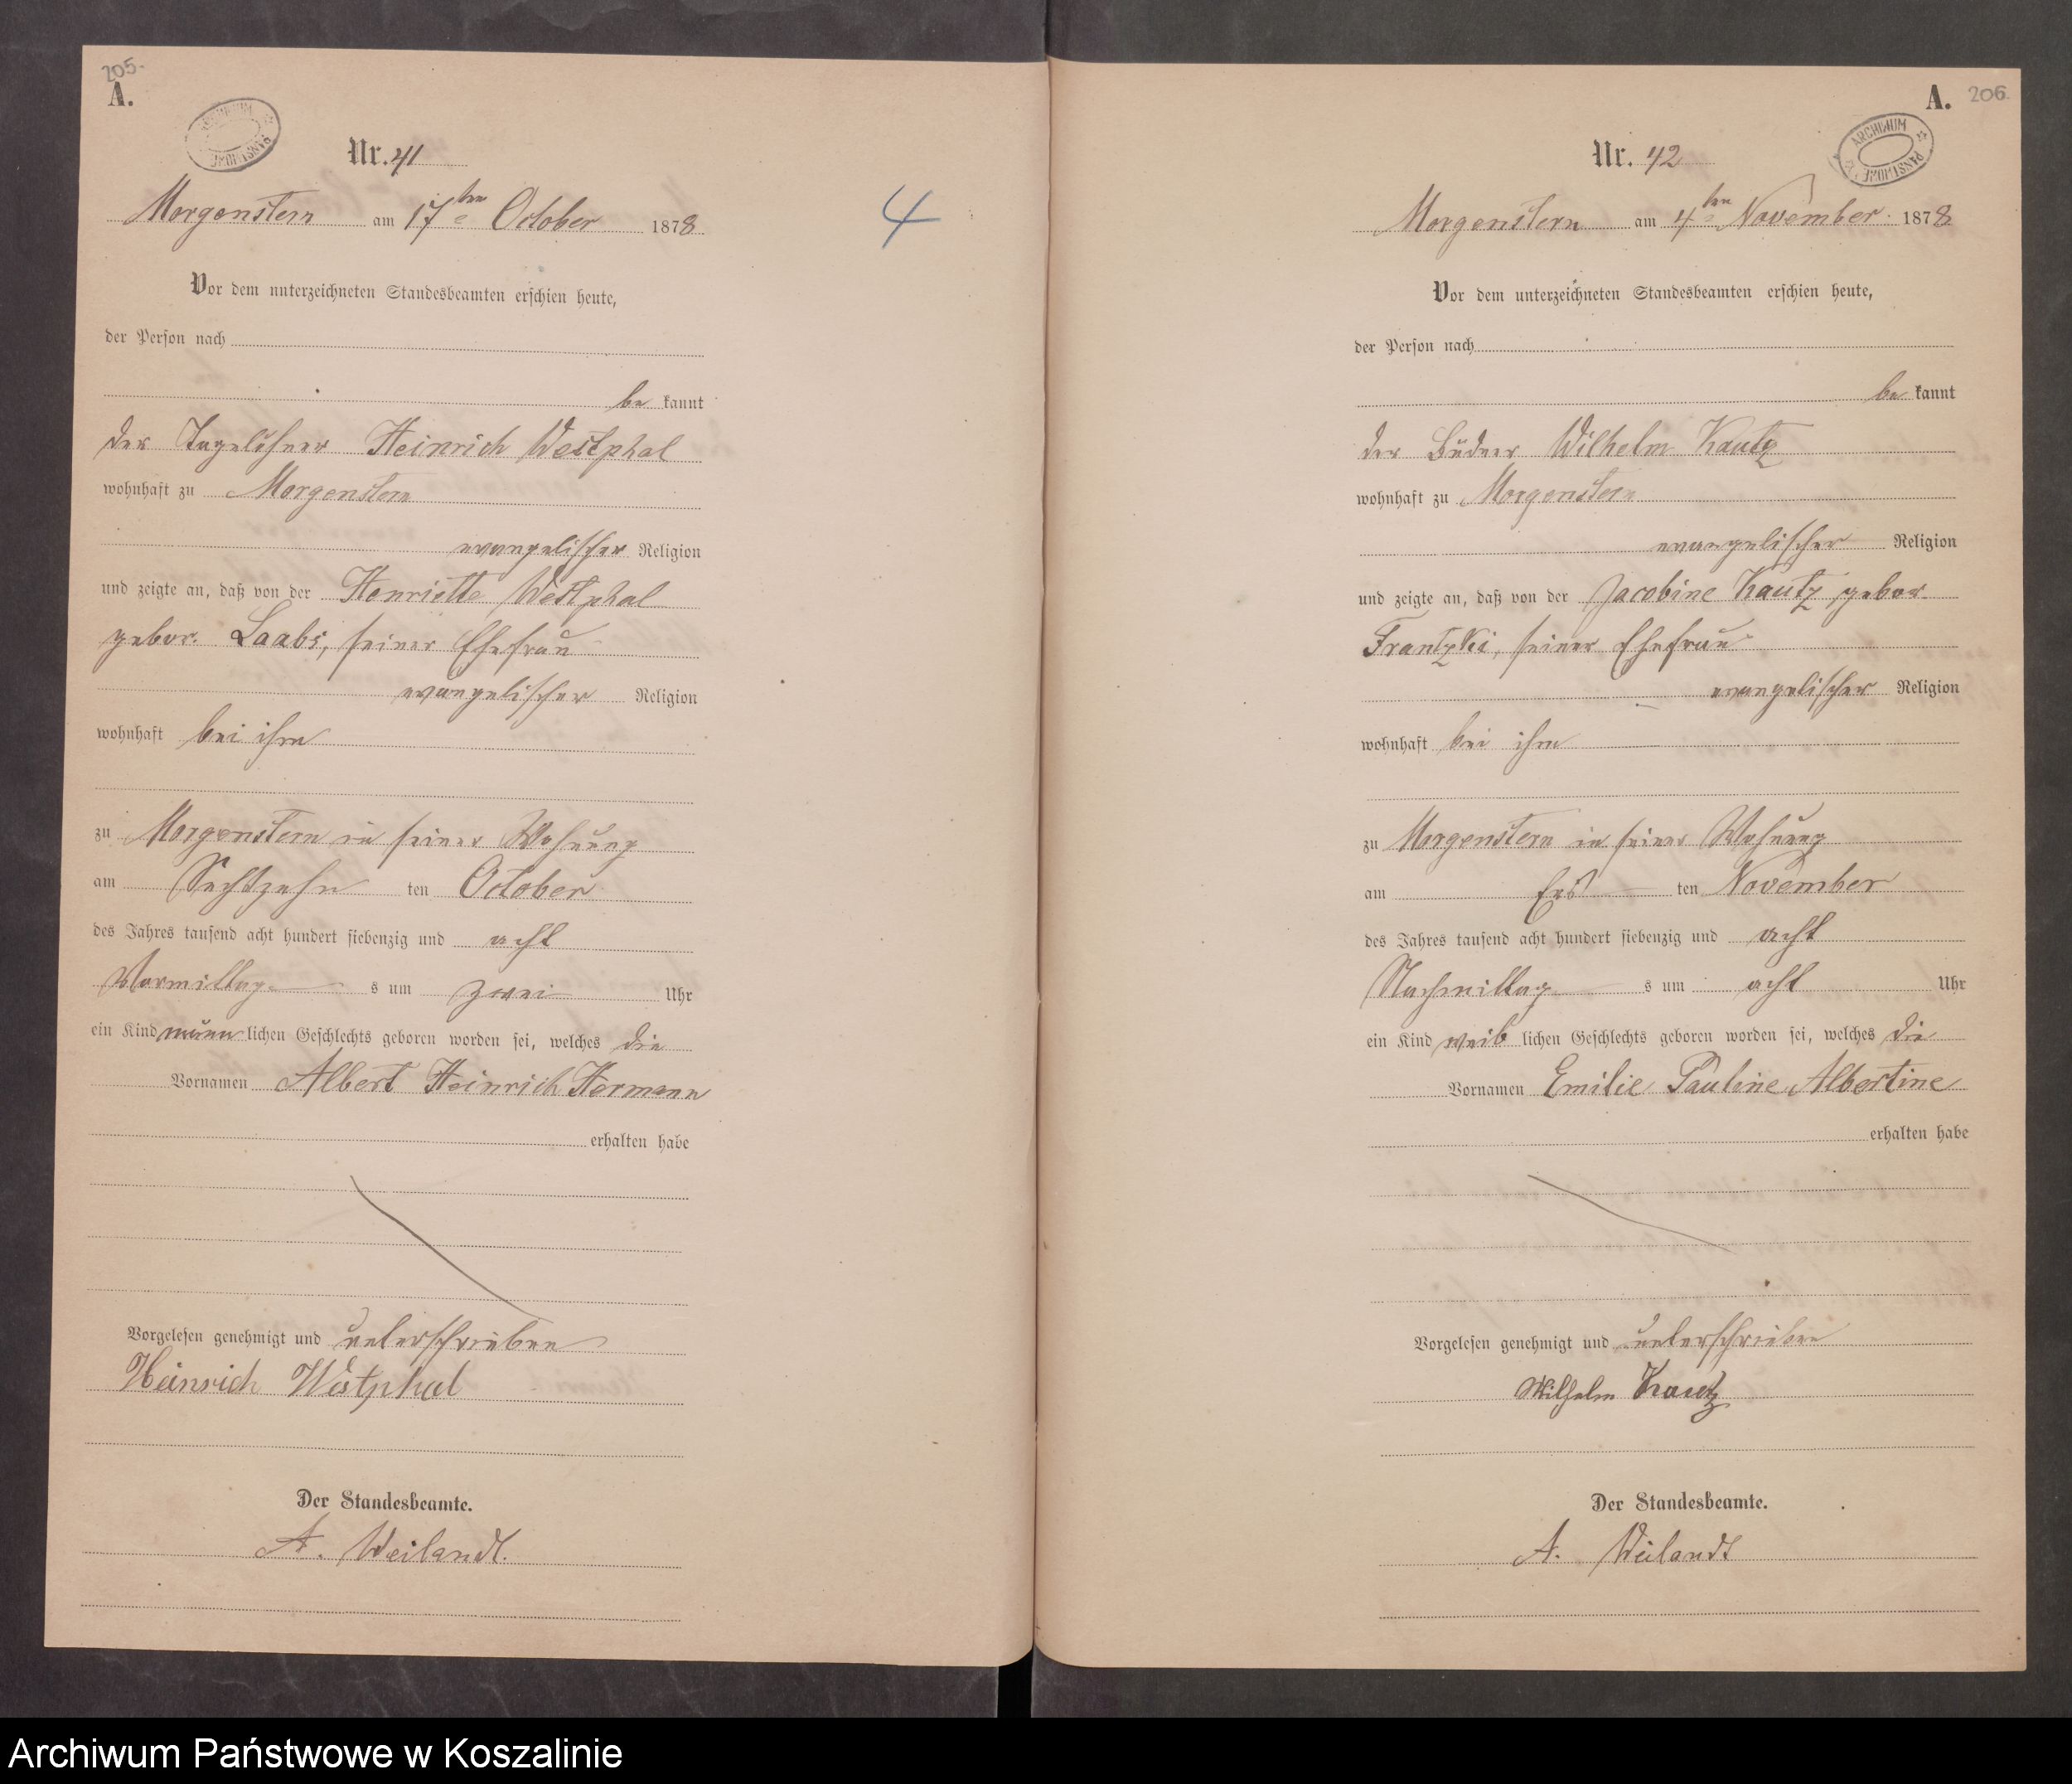 205.
A.
ARCHIWUM PAŃSTWOWE
Nr. 41
Morgenstern am 17ten October 1878
4
Vor dem unterzeichneten Standesbeamten erschien heute,
der Person nach
be kannt
der Tagelöhner Heinrich Westphal
wohnhaft zu Morgenstern
evangelischer Religion
und zeigte an, daß von der Henriette Westphal
gebor. Laabs, seiner Ehefrau
evangelischer Religion
wohnhaft bei ihm
zu Morgenstern in seiner Wohnung
am Sechszehn ten October
des Jahres tausend acht hundert siebenzig und acht
Vormittag s um zwei Uhr
ein Kind männ lichen Geschlechts geboren worden sei, welches die
Vornamen Albert Heinrich Hermann
erhalten habe
Vorgelesen genehmigt und unterschrieben
Heinrich Westphal
Der Standesbeamte.
A. Weilandt.
A. 206.
ARCHIWUM PAŃSTWOWE
Nr. 42
Morgenstern am 4ten November 1878
Vor dem unterzeichneten Standesbeamten erschien heute,
der Person nach
be kannt
der Büdner Wilhelm Kautz
wohnhaft zu Morgenstern
evangelischer Religion
und zeigte an, daß von der Jacobine Kautz gebor.
Frantzki, seiner Ehefrau
evangelischer Religion
wohnhaft bei ihm
zu Morgenstern in seiner Wohnung
am Erst ten November
des Jahres tausend acht hundert siebenzig und acht
Nachmittag s um acht Uhr
ein Kind weib lichen Geschlechts geboren worden sei, welches die
Vornamen Emilie Pauline Albertine
erhalten habe
Vorgelesen genehmigt und unterschrieben
Wilhelm Kautz
Der Standesbeamte.
A. Weilandt
Archiwum Państwowe w Koszalinie